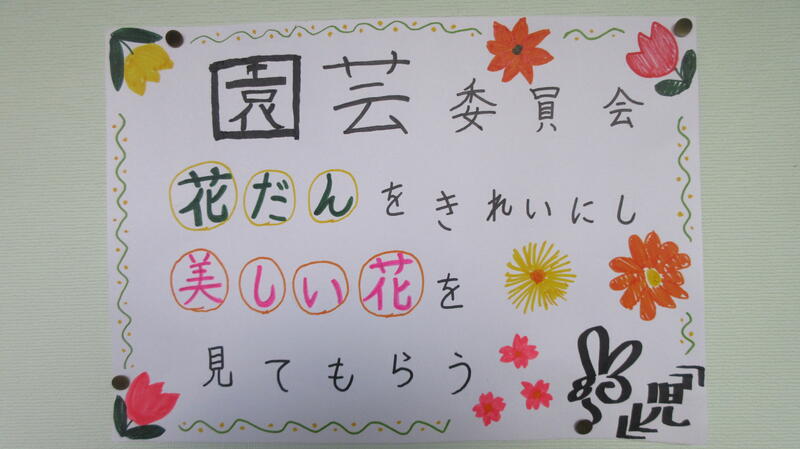 園芸委員会
花だんをきれいにし
美しい花を
見てもらう